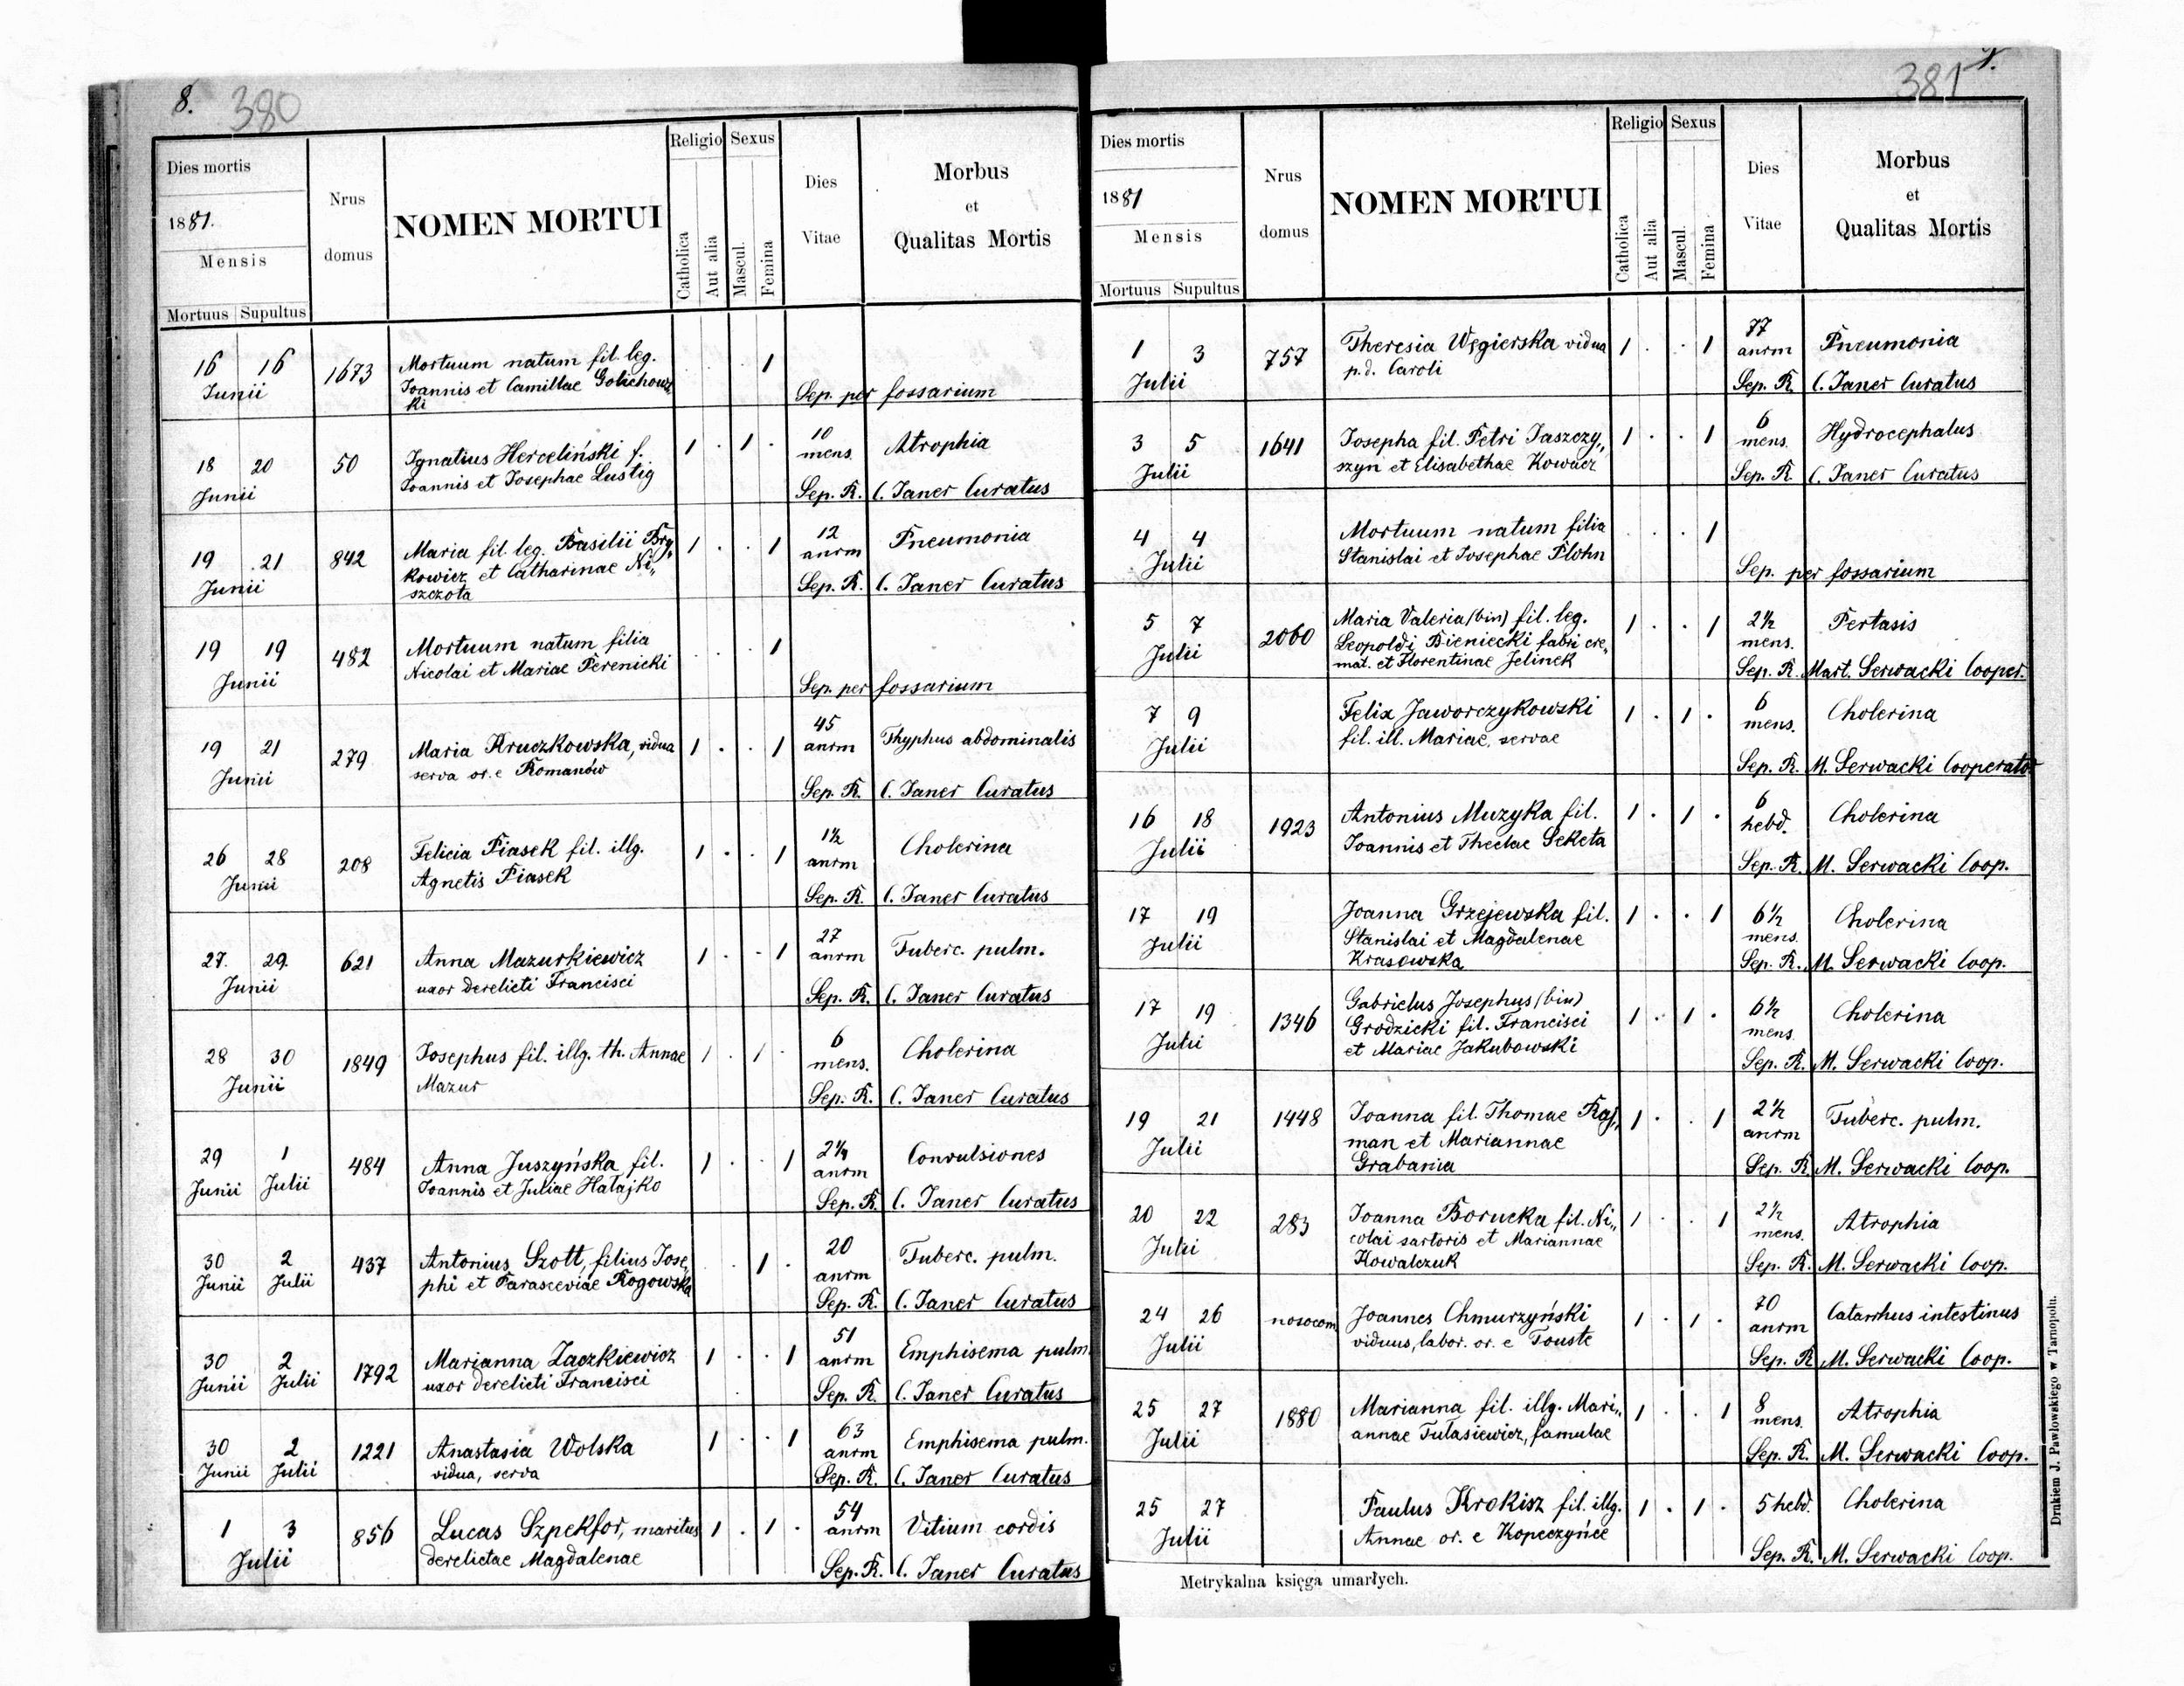 8. 380
Dies mortis
1881.
Mensis
Mortuus Supultus
Nrus
domus
NOMEN MORTUI
Religio
Catholica
Aut alia
Sexus
Mascul.
Femina
Dies
Vitae
Morbus
et
Qualitas Mortis
16 16
Junii
1673
Mortuum natum fil. leg.
Joannis et Camillae Golichows„
ki
1
Sep. per fossarium
18 20
Junii
50
Ignatius Herceliński f.
Joannis et Josephae Lustig
1 . 1 .
10
mens.
Atrophia
Sep. R. C. Janer Curatus
19 21
Junii
842
Maria fil. leg. Basilii Bry„
kowicz et Catharinae Ni„
szczota
1 . . 1
12
anrm
Pneumonia
Sep. R. C. Janer Curatus
19 19
Junii
482
Mortuum natum filia
Nicolai et Mariae Perenicki
. . . 1
Sep. per fossarium
19 21
Junii
279
Maria Kruczkowska, vidua
serva or. e Romanów
1 . . 1
45
anrm
Thyphus abdominalis
Sep. R. C. Janer Curatus
26 28
Junii
208
Felicia Piasek fil. illg.
Agnetis Piasek
1 . . 1
1½
anrm
Cholerina
Sep. R. C. Janer Curatus
27. 29.
Junii
621
Anna Mazurkiewicz
uxor derelicti Francisci
1 . . 1
27
anrm
Tuberc. pulm.
Sep. R. C. Janer Curatus
28 30
Junii
1849
Josephus fil. illg. th. Annae
Mazur
1 . 1 .
6
mens.
Cholerina
Sep. R. C. Janer Curatus
29 1
Junii Julii
484
Anna Juszyńska fil.
Joannis et Juliae Hatajko
1 . . 1
2¼
anrm
Convulsiones
Sep. R. C. Janer Curatus
30 2
Junii Julii
437
Antonius Szott, filius Jose„
phi et Parasceviae Rogowska
. 1 .
20
anrm
Tuberc. pulm.
Sep. R. C. Janer Curatus
30 2
Junii Julii
1792
Marianna Zaczkiewicz
uxor derelicti Francisci
1 . . 1
51
anrm
Emphisema pulm.
Sep. R. C. Janer Curatus
30 2
Junii Julii
1221
Anastasia Wolska
vidua, serva
1 . . 1
63
anrm
Emphisema pulm.
Sep. R. C. Janer Curatus
1 3
Julii
856
Lucas Szpekfor, maritus
derelictae Magdalenae
1 . 1 .
54
anrm
Vitium cordis
Sep. R. C. Janer Curatus
381
Dies mortis
1881
Mensis
Mortuus Supultus
Nrus
domus
NOMEN MORTUI
Religio
Catholica
Aut alia
Sexus
Mascul.
Femina
Dies
Vitae
Morbus
et
Qualitas Mortis
1 3
Julii
757
Theresia Węgierska vidua
p. d. Caroli
1 . . 1
77
anrm
Pneumonia
Sep. R. C. Janer Curatus
3 5
Julii
1641
Josepha fil. Petri Jaszczy„
szyn et Elisabethae Kowacz
1 . . 1
6
mens.
Hydrocephalus
Sep. R. C. Janer Curatus
4 4
Julii
Mortuum natum filia
Stanislai et Josephae Plohn
. . . 1
Sep. per fossarium
5 7
Julii
2060
Maria Valeria (bin) fil. leg.
Leopoldi Bieniecki fabri cre„
mat. et Florentinae Jelinek
1 . . 1
2½
mens.
Pertasis
Sep. R. Mart. Serwacki Cooper.
7 9
Julii
Felix Jaworczykowski
fil. ill. Mariae, servae
1 . 1 .
6
mens.
Cholerina
Sep. R. M. Serwacki Cooperator
16 18
Julii
1923
Antonius Muzyka fil.
Joannis et Theclae Seketa
1 . 1 .
6
hebd.
Cholerina
Sep. R. M. Serwacki Coop.
17 19
Julii
Joanna Grzejewska fil.
Stanislai et Magdalenae
Krasowska
1 . . 1
6½
mens.
Cholerina
Sep. R. M. Serwacki Coop.
17 19
Julii
1346
Gabrielus Josephus (bin)
Grodzicki fil. Francisci
et Mariae Jakubowski
1 . 1 .
6½
mens.
Cholerina
Sep. R. M. Serwacki Coop.
19 21
Julii
1448
Joanna fil. Thomae Raj„
man et Mariannae
Grabania
1 . . 1
2½
anrm
Tuberc. pulm.
Sep. R. M. Serwacki Coop.
20 22
Julii
283
Joanna Borucka fil. Ni„
colai sartoris et Mariannae
Kowalczuk
1 . . 1
2½
mens.
Atrophia
Sep. R. M. Serwacki Coop.
24 26
Julii
nosocom.
Joannes Chmurzyński
viduus, labor. or. e Touste
1 . 1 .
70
anrm
Catarrhus intestinus
Sep. R. M. Serwacki Coop.
25 27
Julii
1880
Marianna fil. illg. Mari„
annae Tutasiewicz, famulae
1 . . 1
8
mens.
Atrophia
Sep. R. M. Serwacki Coop.
25 27
Julii
Paulus Krokisz fil. illg.
Annae or. e Kopeczyńce
1 . 1 .
5 hebd.
Cholerina
Sep. R. M. Serwacki Coop.
Metrykalna księga umarłych.
Drukiem J. Pawłowskiego w Tarnopolu.